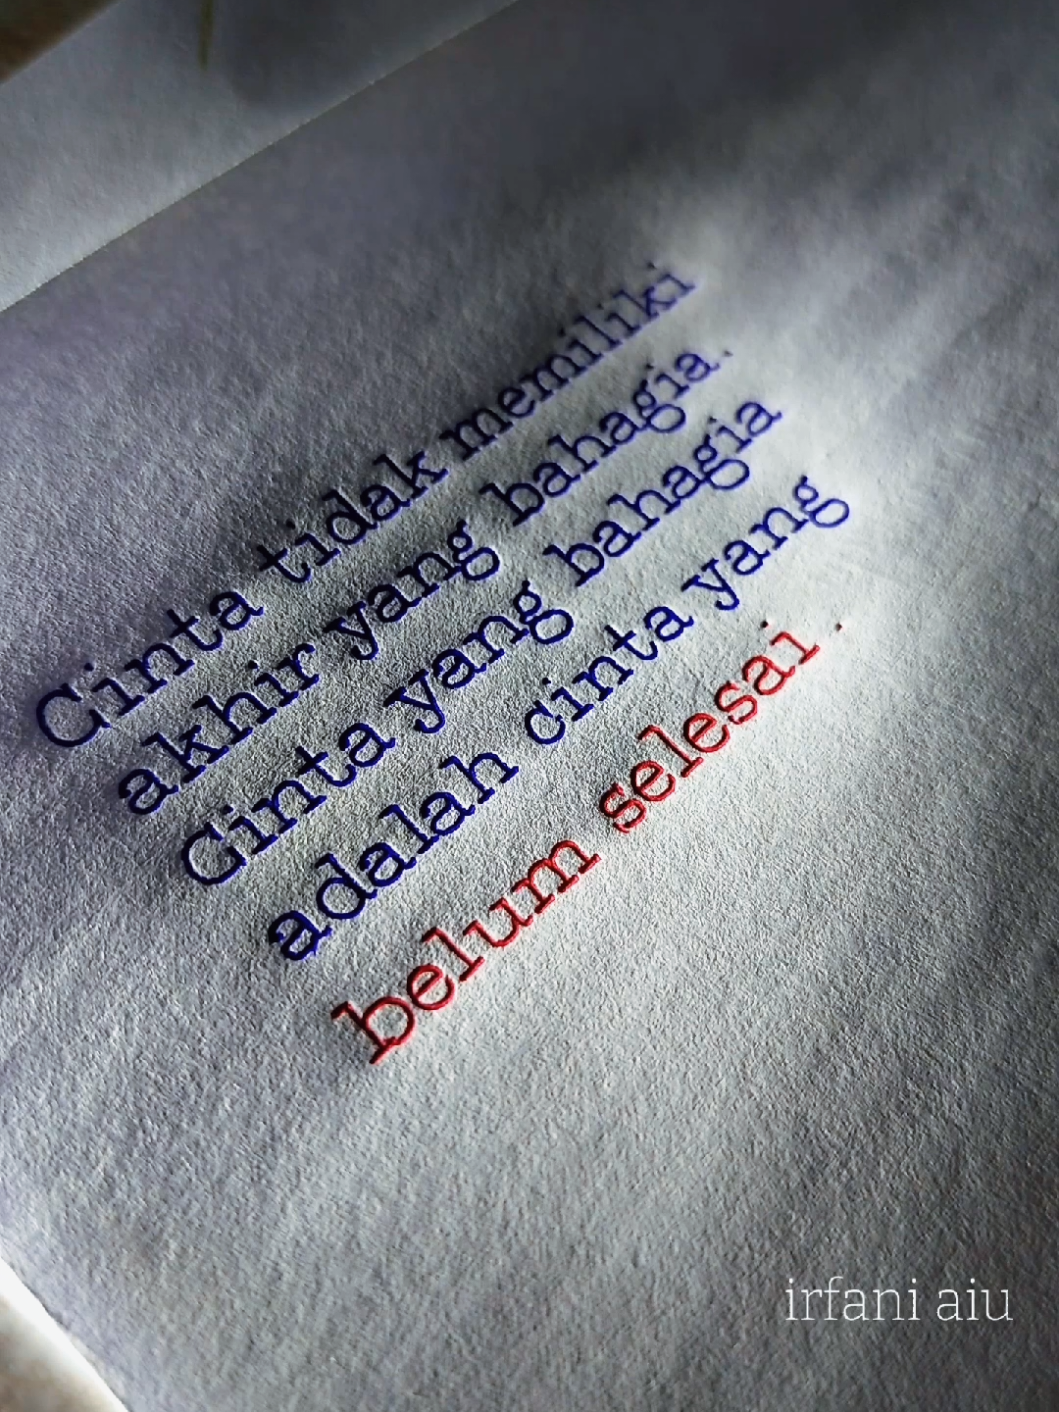 Cinta tidak memiliki
akhir yang bahagia.
Cinta yang bahagia
adalah cinta yang
belum selesai.
irfani aiu